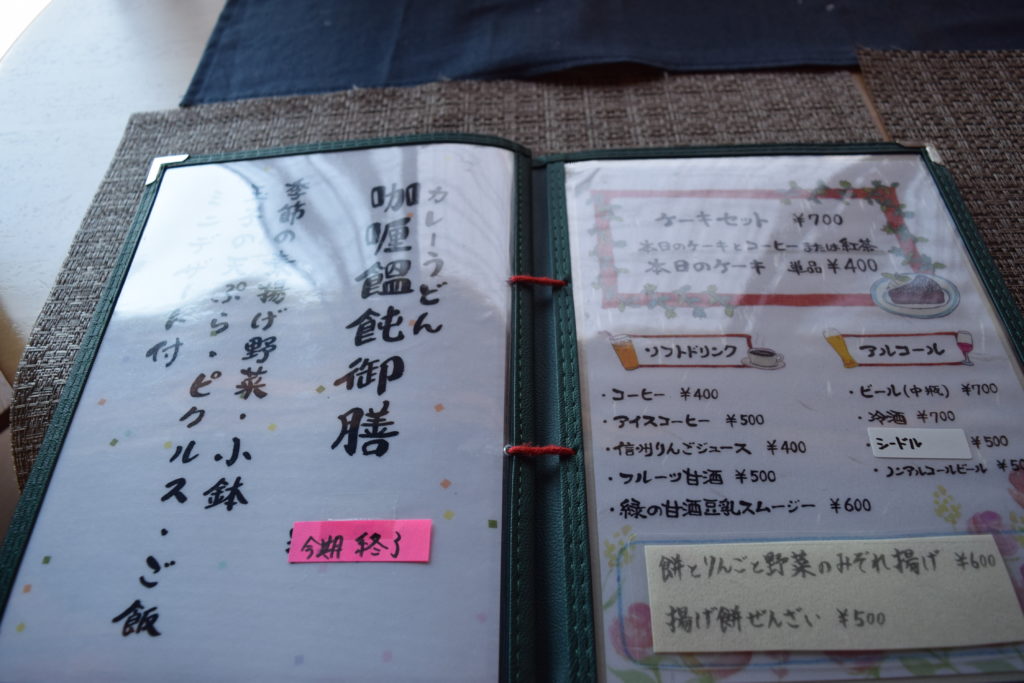 カレーうどん
咖喱饂飩御膳
季節の 揚げ野菜・小鉢
の天ぷら・ピクルス・ご飯
ミニデザート付
今期終了
ケーキセット ¥700
本日のケーキとコーヒーまたは紅茶
本日のケーキ 単品¥400
ソフトドリンク
・コーヒー ¥400
・アイスコーヒー ¥500
・信州りんごジュース ¥400
・フルーツ甘酒 ¥500
・緑の甘酒豆乳スムージー ¥600
アルコール
・ビール(中瓶) ¥700
・冷酒 ¥700
・シードル ¥500
・ノンアルコールビール
餅とりんごと野菜のみぞれ揚げ ¥600
揚げ餅ぜんざい ¥500